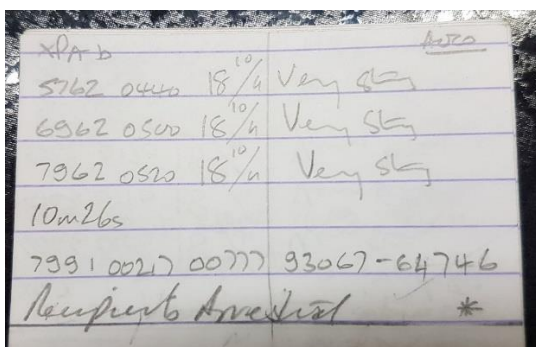 XPA-b
5762 0440 18 10/4 Very Stg
6962 0500 18 10/4 Very Stg
7962 0520 18 10/4 Very Stg
10m26s
7991 00217 00777 93067-64746
Recipients Arrested *